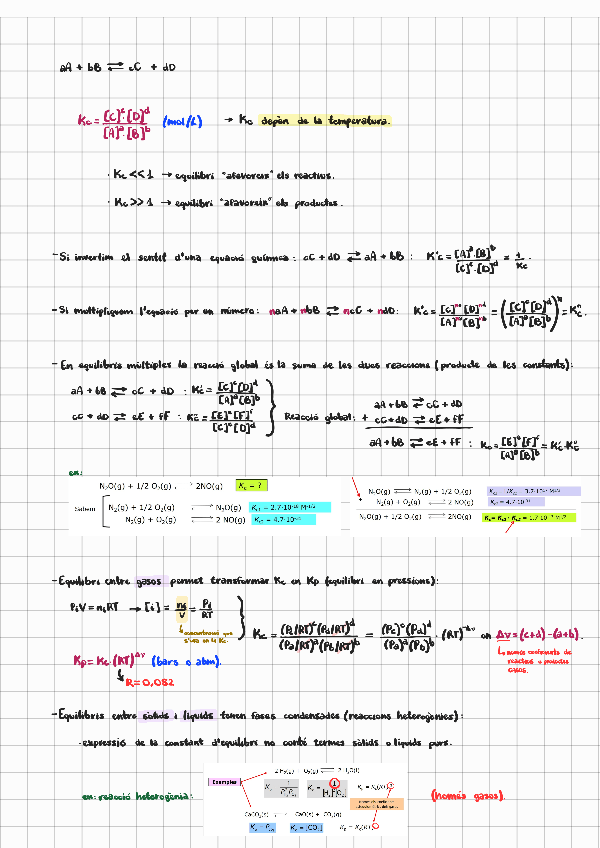 aA + bB ⇄ cC + dD
Kc = [C]ᶜ·[D]ᵈ / [A]ᵃ·[B]ᵇ (mol/L) → Kc depèn de la temperatura.
· Kc << 1 → equilibri "afavoreix" els reactius.
· Kc >> 1 → equilibri "afavoreix" els productes.
- Si invertim el sentit d'una equació química: cC + dD ⇄ aA + bB : K'c = [A]ᵃ·[B]ᵇ / [C]ᶜ·[D]ᵈ = 1/Kc.
- Si multipliquem l'equació per un número: naA + nbB ⇄ ncC + ndD: K'c = [C]ⁿᶜ[D]ⁿᵈ / [A]ⁿᵃ[B]ⁿᵇ = ([C]ᶜ[D]ᵈ / [A]ᵃ[B]ᵇ)ⁿ = Kcⁿ.
- En equilibris múltiples la reacció global és la suma de les dues reaccions (producte de les constants):
aA + bB ⇄ cC + dD : K'c = [C]ᶜ[D]ᵈ / [A]ᵃ[B]ᵇ
cC + dD ⇄ eE + fF : K"c = [E]ᵉ[F]ᶠ / [C]ᶜ[D]ᵈ
Reacció global: +
aA + bB ⇄ cC + dD
cC + dD ⇄ eE + fF
aA + bB ⇄ eE + fF : Kc = [E]ᵉ[F]ᶠ / [A]ᵃ[B]ᵇ = K'c·K"c
en:
N₂O(g) + 1/2 O₂(g) ⇄ 2NO(g) Kc = ?
Sabem
N₂(g) + 1/2 O₂(g) ⇄ N₂O(g)
N₂(g) + O₂(g) ⇄ 2 NO(g)
N₂O(g) ⇄ N₂(g) + 1/2 O₂(g)
N₂(g) + O₂(g) ⇄ 2 NO(g)
N₂O(g) + 1/2 O₂(g) ⇄ 2NO(g)
- Equilibri entre gasos permet transformar Kc en Kp (equilibri en pressions):
PiV = niRT → [i] = ni/V = Pi/RT
↳ concentració que
s'usa en la Kc.
Kc = (Pc/RT)ᶜ(Pd/RT)ᵈ / (Pa/RT)ᵃ(Pb/RT)ᵇ = (Pc)ᶜ(Pd)ᵈ / (Pa)ᵃ(Pb)ᵇ · (RT)^-Δν on Δν = (c+d) - (a+b).
↳ només coeficients de
reactius o productes
gasos.
Kp = Kc·(RT)^Δν (bars o atm).
↳ R = 0,082
- Equilibris entre sòlids i líquids tenen fases condensades (reaccions heterogènies):
· expressió de la constant d'equilibri no conté termes sòlids o líquids purs.
Examples
en: reacció heterogènia:
(només gasos).